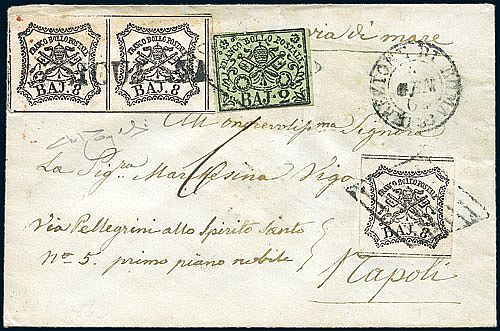 FRANCO BOLLO POSTALE FRANCO BOLLO POSTALE FRANCO BOLLO POSTALE
BAJ. 8 BAJ. 8 BAJ. 2
via di mare
DIREZIONE DI
All Signora
La Sig.ra Vigo
Via Pellegrini allo Spirito Santo
No 5. primo piano nobile
Napoli
FRANCO BOLLO POSTALE
BAJ. 8